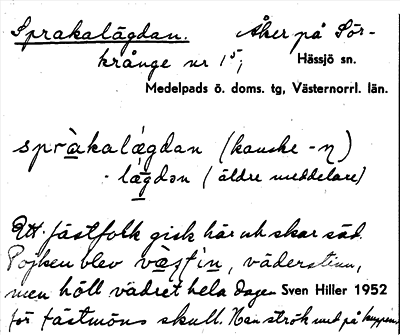 Sprakalägdan. Åker på Sör-
krånge nr 15,
Hässjö sn.
Medelpads ö. doms. tg, Västernorrl. län.
språ̀kalǽgdan (kanske -n)
- lǽgdən (äldre meddelare)
Ett fästfolk gick här och skar säd.
Pojken blev väsfin, väderstinn,
men höll vädret hela dagen Sven Hiller 1952
för fästmöns skull. Han strök med på kuppen.